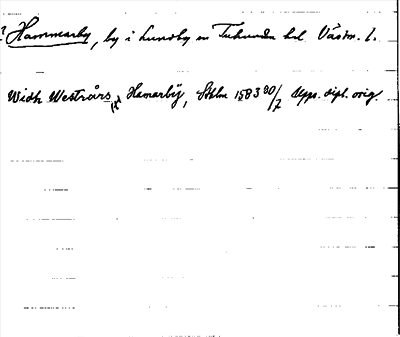 ? Hammarby, by i Lundby sn Tuhundra hd Västm. l.
Widh Westrårs, Hamarbÿ, Sthlm 1583 30/7 Upps. dipl. orig.